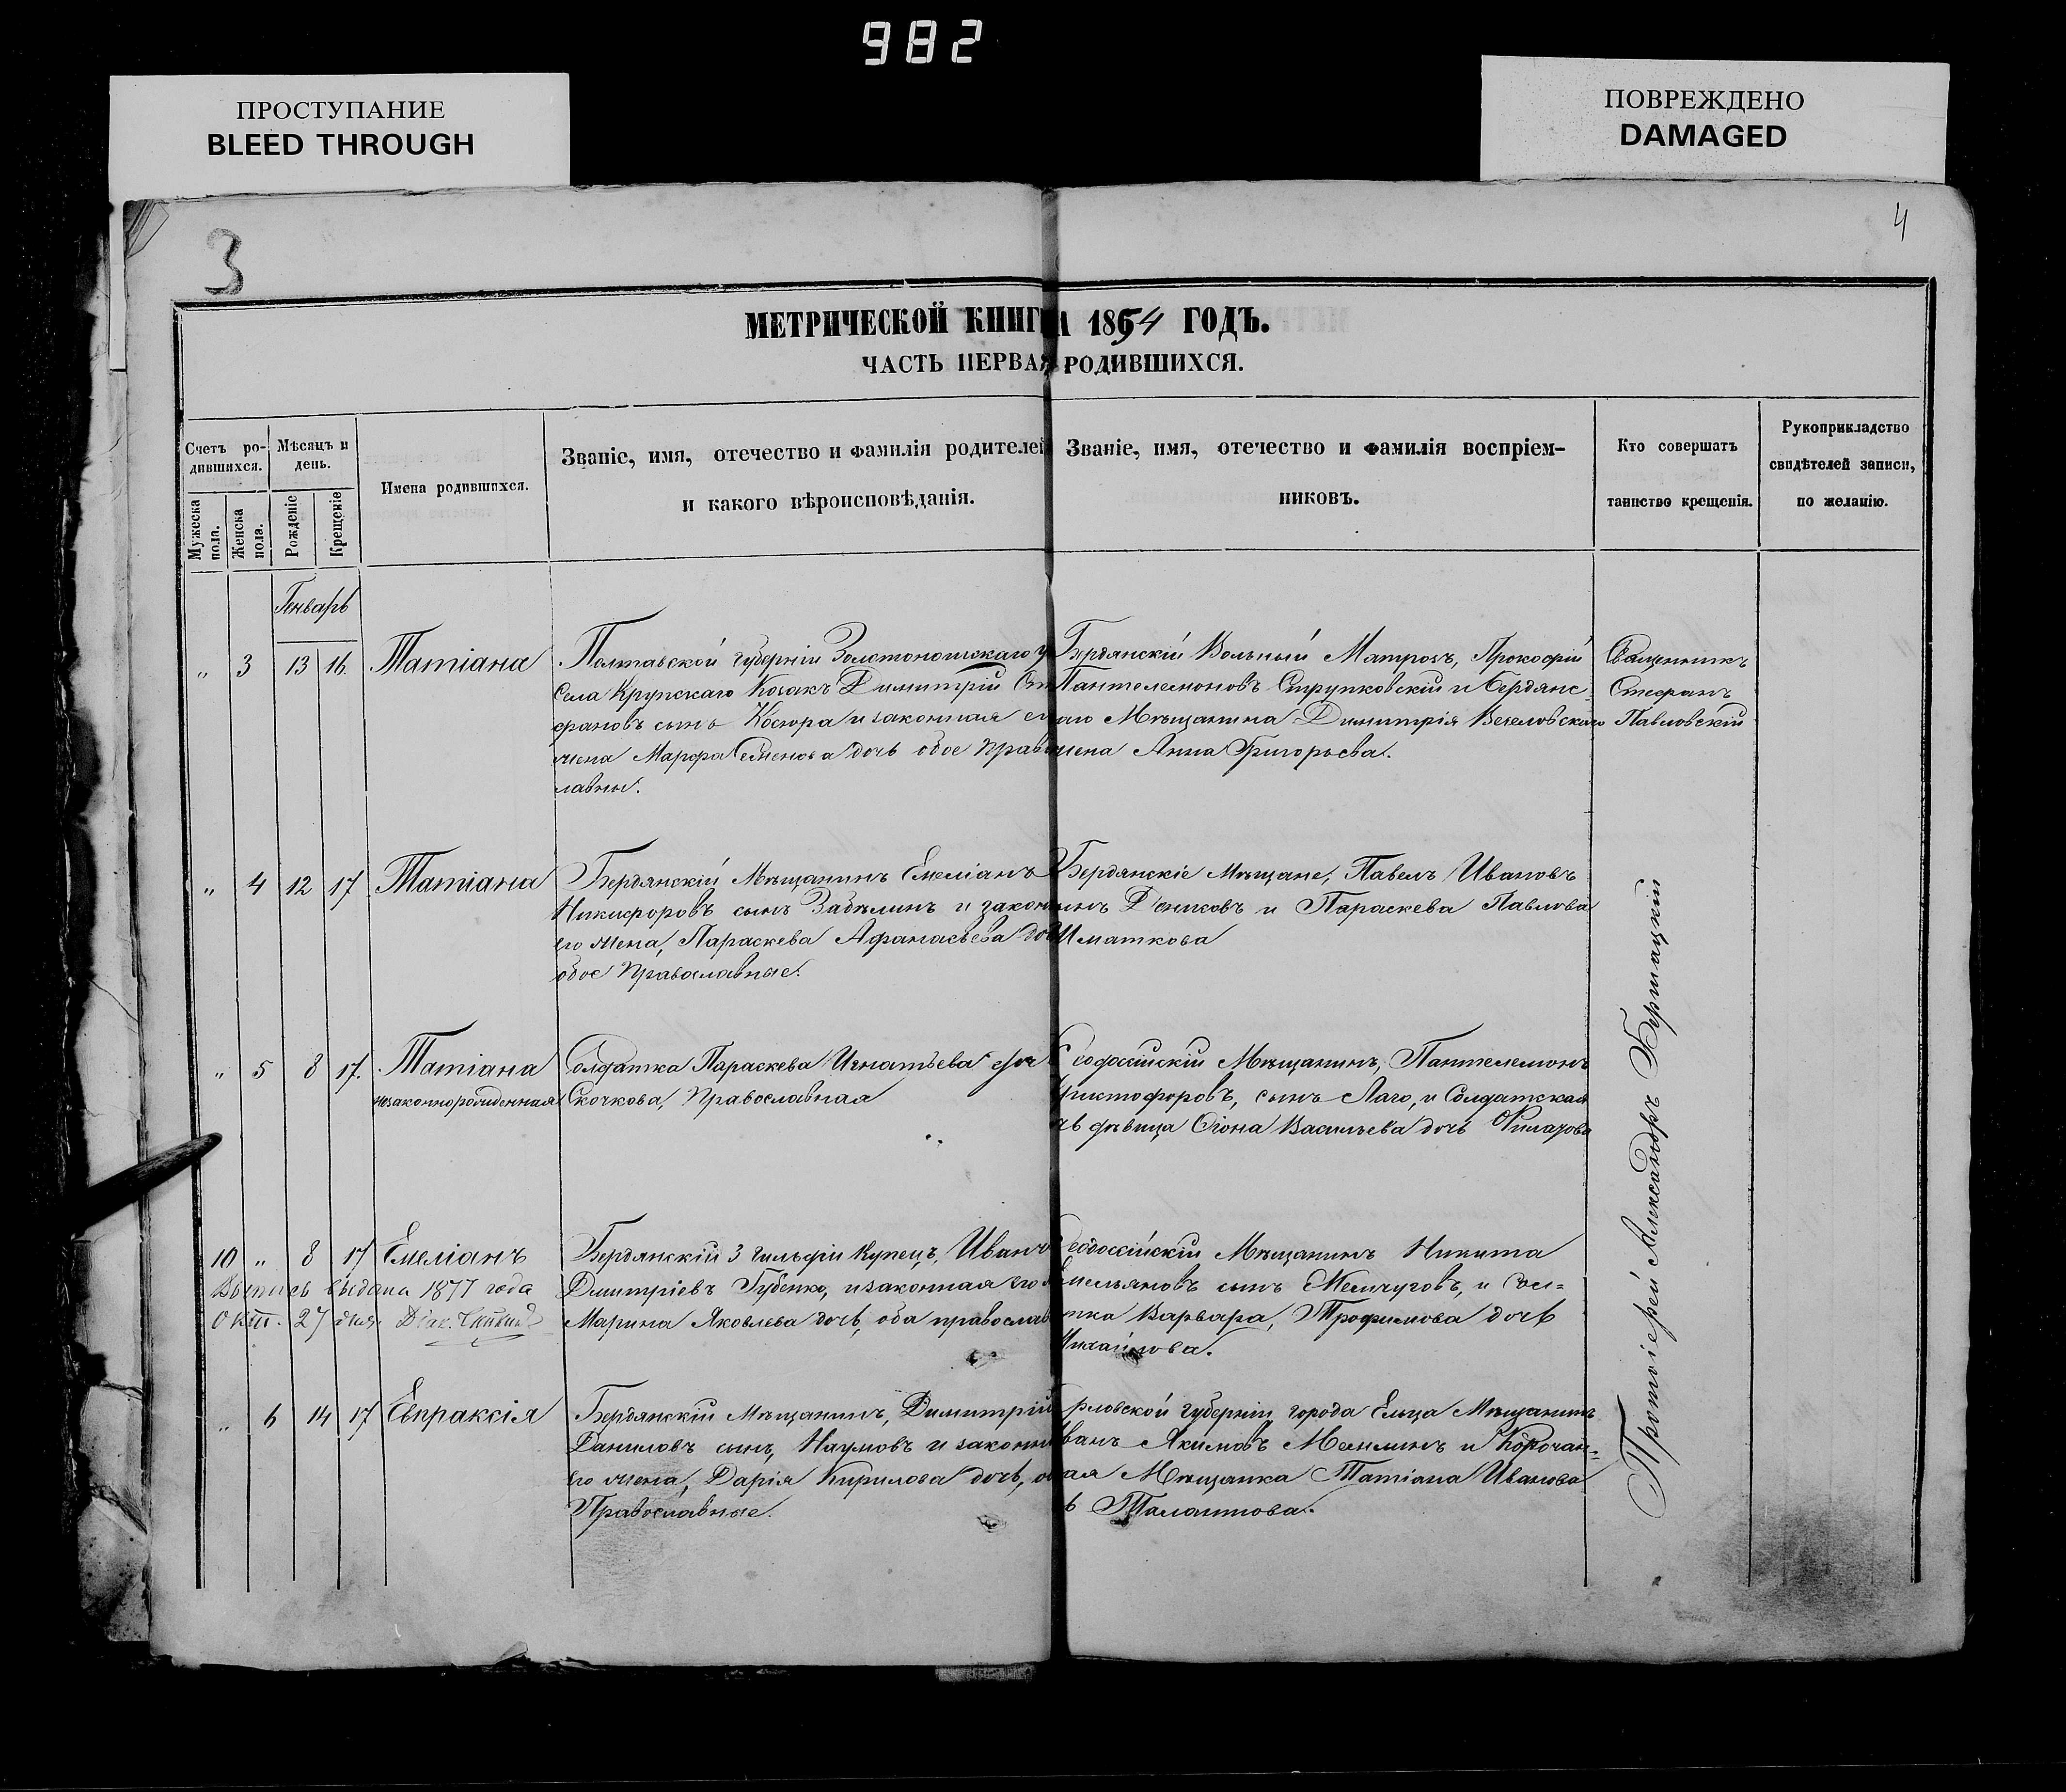 982
ПРОСТУПАНИЕ
BLEED THROUGH
ПОВРЕЖДЕНО
DAMAGED
3
4
МЕТРИЧЕСКОЙ КНИГИ 1854 ГОДЪ.
ЧАСТЬ ПЕРВАЯ РОДИВШИХСЯ.
Счетъ ро-
дившихся.
Мужеска
пола.
Женска
пола.
Мѣсяцъ и
день.
Рожденіе
Крещеніе
Имена родившихся.
Званіе, имя, отечество и фамилія родителей
и какого вѣроисповѣданія.
Званіе, имя, отечество и фамилія воспріем-
никовъ.
Кто совершатъ
таинство крещенія.
Рукоприкладство
свидѣтелей записи,
по желанію.
Генварь
„ 3 13 16. Татіана
Полтавской губерніи Золотоношскаго у
Села Крупскаго Козакъ Димитрій Сте
фановъ сынъ Косюра и законная его
жена Марфа Семенова дочь обое право
лавны.
Бердянскій Вольный Матрозъ, Прокофій
Пантелемоновъ Струпковскій и Бердянс-
каго Мѣщанина Димитрія Веселовскаго
жена Анна Григорьева.
Священникъ
Стефанъ
Павловскій
„ 4 12 17 Татіана
Бердянскій Мѣщанинъ Емеліанъ
Никифоровъ сынъ Забѣлинъ и закон
его жена, Параскева Афанасьева доч
обое Православные.
Бердянскіе Мѣщане, Павелъ Ивановъ
сынъ Дениковъ и Параскева Павлова
Игнаткова
„ 5 8 17. Татіана
незаконнорожденная
Солдатка Параскева Игнатьева доч
Скочкова, Православная
Ѳеодосійскій Мѣщанинъ, Пантелемонъ
Христофоровъ, сынъ Лаго, и Солдатская
дѣвица Ѳіона Васильева дочь
10 „ 8 17 Емеліанъ
Выпись выдана 1877 года
Окт. 27 дня
Бердянскій 3 гильдіи Купецъ, Иванъ
Димитріевъ Губенко, и законная его
Марина Яковлева дочь, оба православ
Ѳеодосійскій Мѣщанинъ Никита
Емельяновъ сынъ Жемчуговъ, и Сол=
атка Варвара, Трофимова дочь
Михайлова.
„ 6 14 17 Евпраксія
Бердянскій Мѣщанинъ, Димитрій
Даниловъ сынъ, Наумовъ и законн
его жена, Дарія Кирилова дочь, об
Православные.
Орловской губерніи, города Ельца Мѣщанинъ
Иванъ Якимовъ Маслинъ и Корочан=
ская Мѣщанка Татіана Иванова
ь Талатова.
Протоіерей Александръ Бершацкій